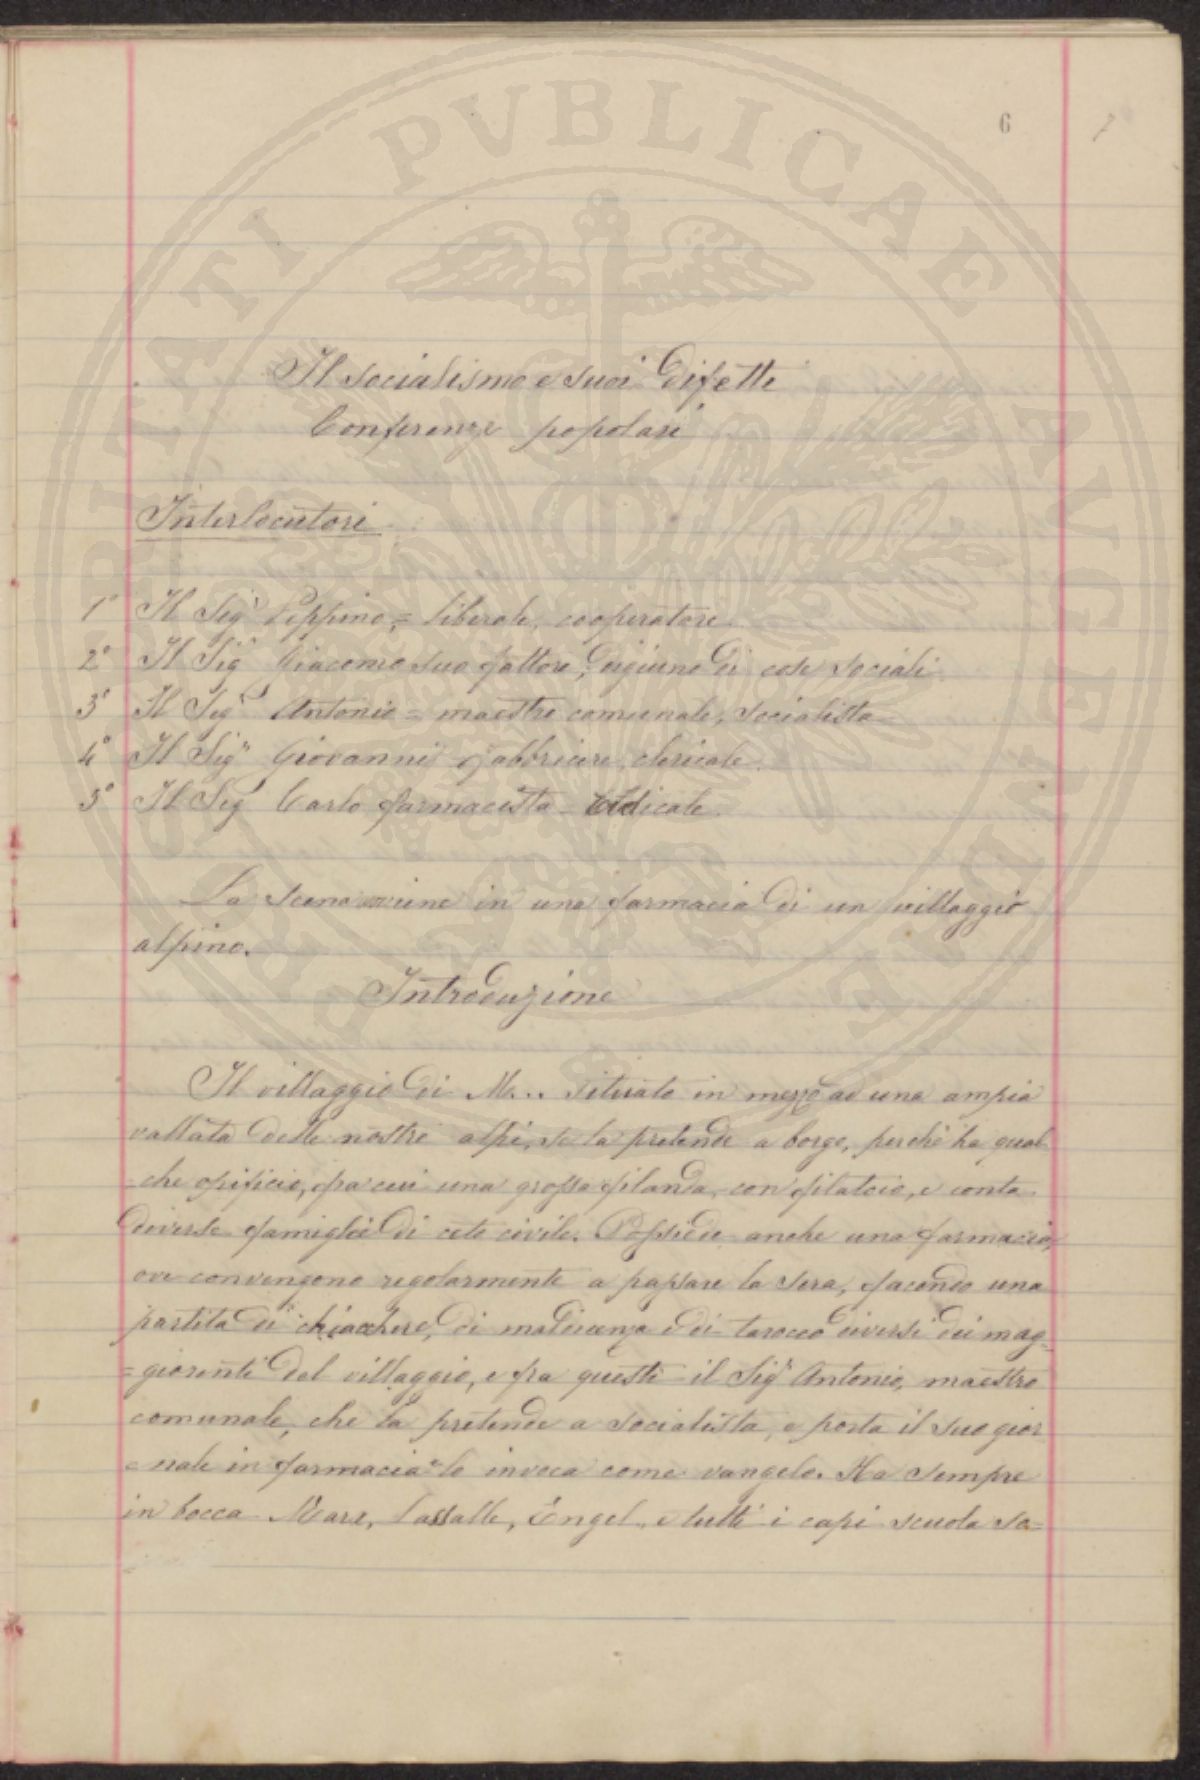 6
Il socialismo e suoi difetti
Conferenze popolari
Interlocutori
1º Il Sigr Peppino = liberale, cooperatore
2º Il Sigr Giacomo suo fattore, digiuno di cose sociali
3º Il Sigr Antonio = maestro comunale, socialista
4º Il Sigr Giovanni fabbriciere, clericale.
5º Il Sig Carlo farmacista radicale.
La scena avviene in una farmacia di un villaggio
alpino.
Introduzione
Il villaggio di M... situato in mezzo ad una ampia
vallata delle nostre alpi, se la pretende a borgo, perchè ha qual
che opificio, fra cui una grossa filanda, con filatoio, e conta
diverse famiglie di ceto civile. Possiede anche una farmacia,
ove convengono regolarmente a passare la sera, facendo una
partita di chiacchere, di maldicenza e di tarocco diversi dei mag-
=giorenti del villaggio, e fra questi il Sigr Antonio, maestro
comunale, che la pretende a socialista, e porta il suo gior
=nale in farmacia e lo invoca come vangelo. Ha sempre
in bocca Marx, Lassalle, Engel, e tutti i capi scuola so=
PVBLICAE